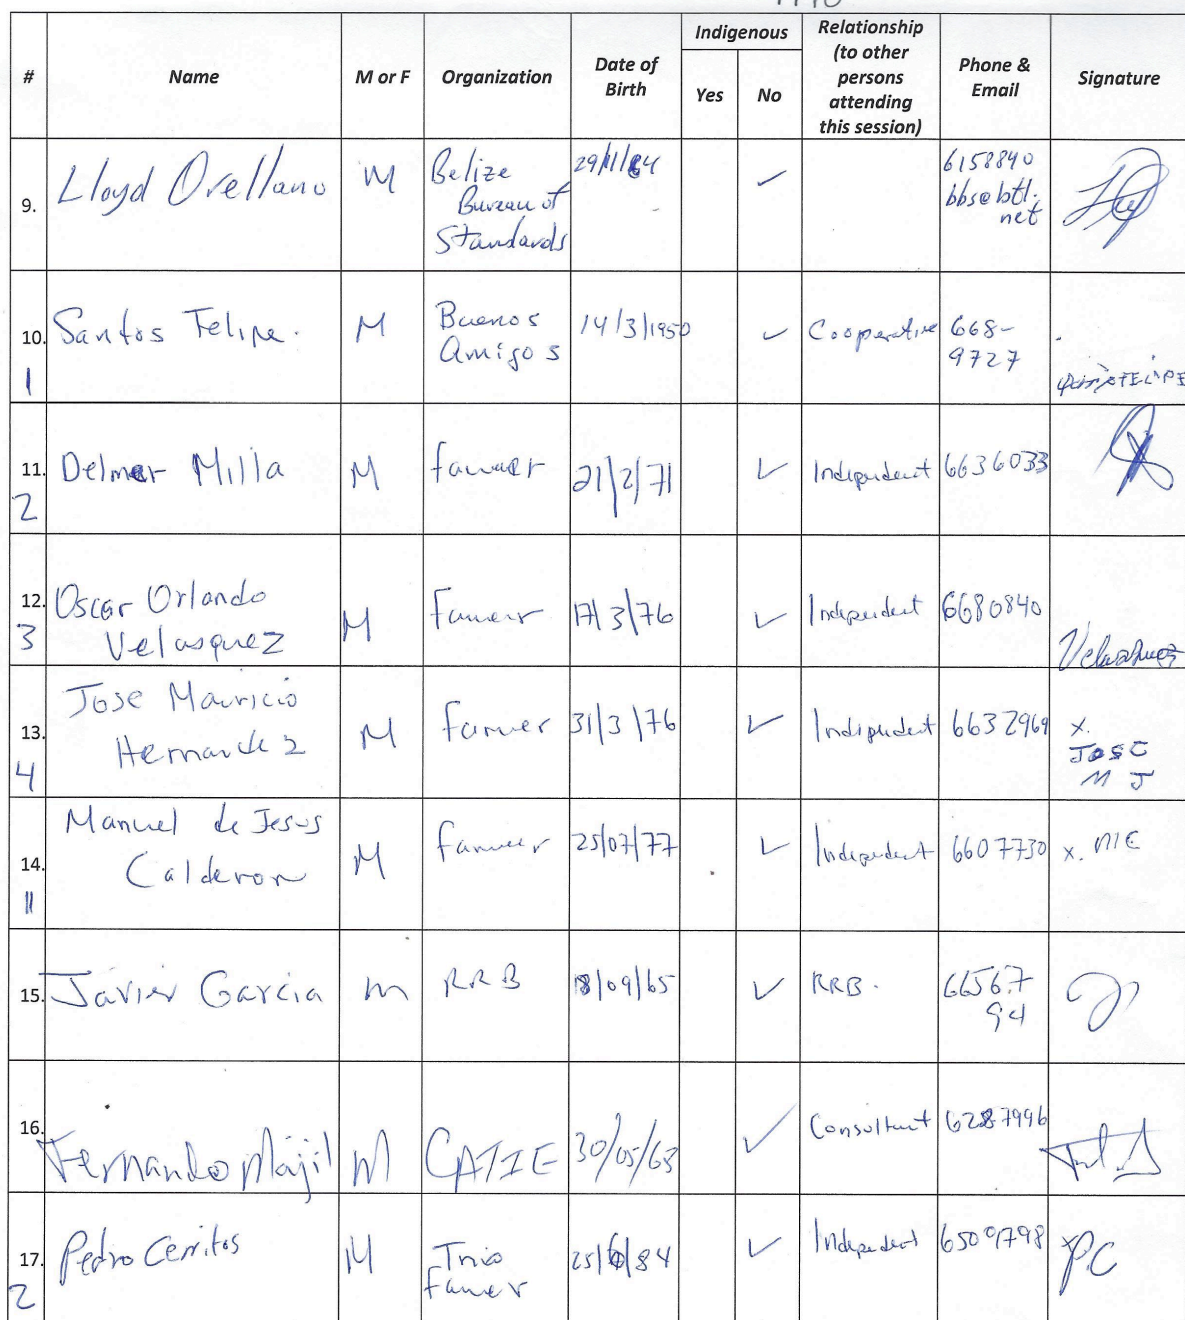 # Name M or F Organization Date of Birth Indigenous Yes No Relationship (to other persons attending this session) Phone & Email Signature
9. Lloyd Orellano M Belize Bureau of Standards 29/11/64 ✓ 6158840 bbs@btl.net
10. 1 Santos Felipe. M Buenos Amigos 14/3/1950 ✓ Cooperative 668-9727 FELIPE
11. 2 Delmer Milla M farmer 21/2/71 ✓ Independent 6636033
12. 3 Oscar Orlando Velasquez M Farmer 17/3/76 ✓ Independent 6680840 Velasquez
13. 4 Jose Mauricio Hernandez M farmer 31/3/76 ✓ Independent 6632969 x. JOSE M J
14. 11 Manuel de Jesus Calderon M farmer 25/07/77 ✓ Independent 6607730 x. MC
15. Javier Garcia m RRB 8/09/65 ✓ RRB. 6656794
16. Fernando Majil M CATIE 30/05/63 ✓ Consultant 6287996
17. 2 Pedro Cerritos M Trio farmer 25/6/84 ✓ Independent 6509798 PC